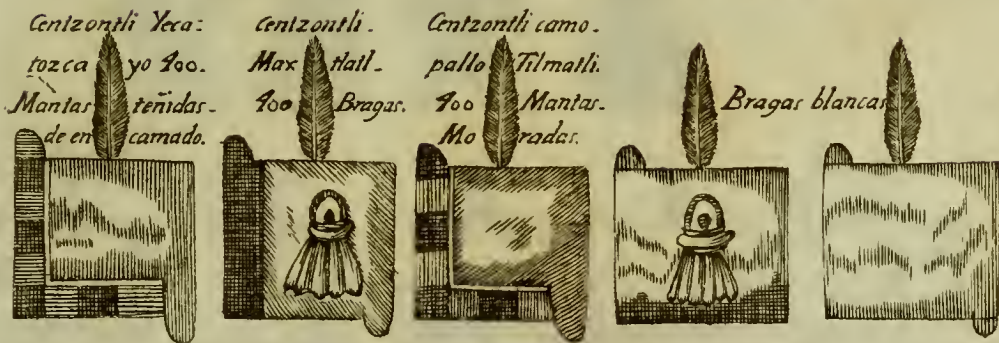 Centzontli Yeca=
tozca yo 400.
Mantas teñidas-
de en carnado.
centzontli-
Max tlatl-
400 Bragas.
Centzontli camo-
pallo Tilmatli.
400 Mantas-
Mo radas.
Bragas blancas